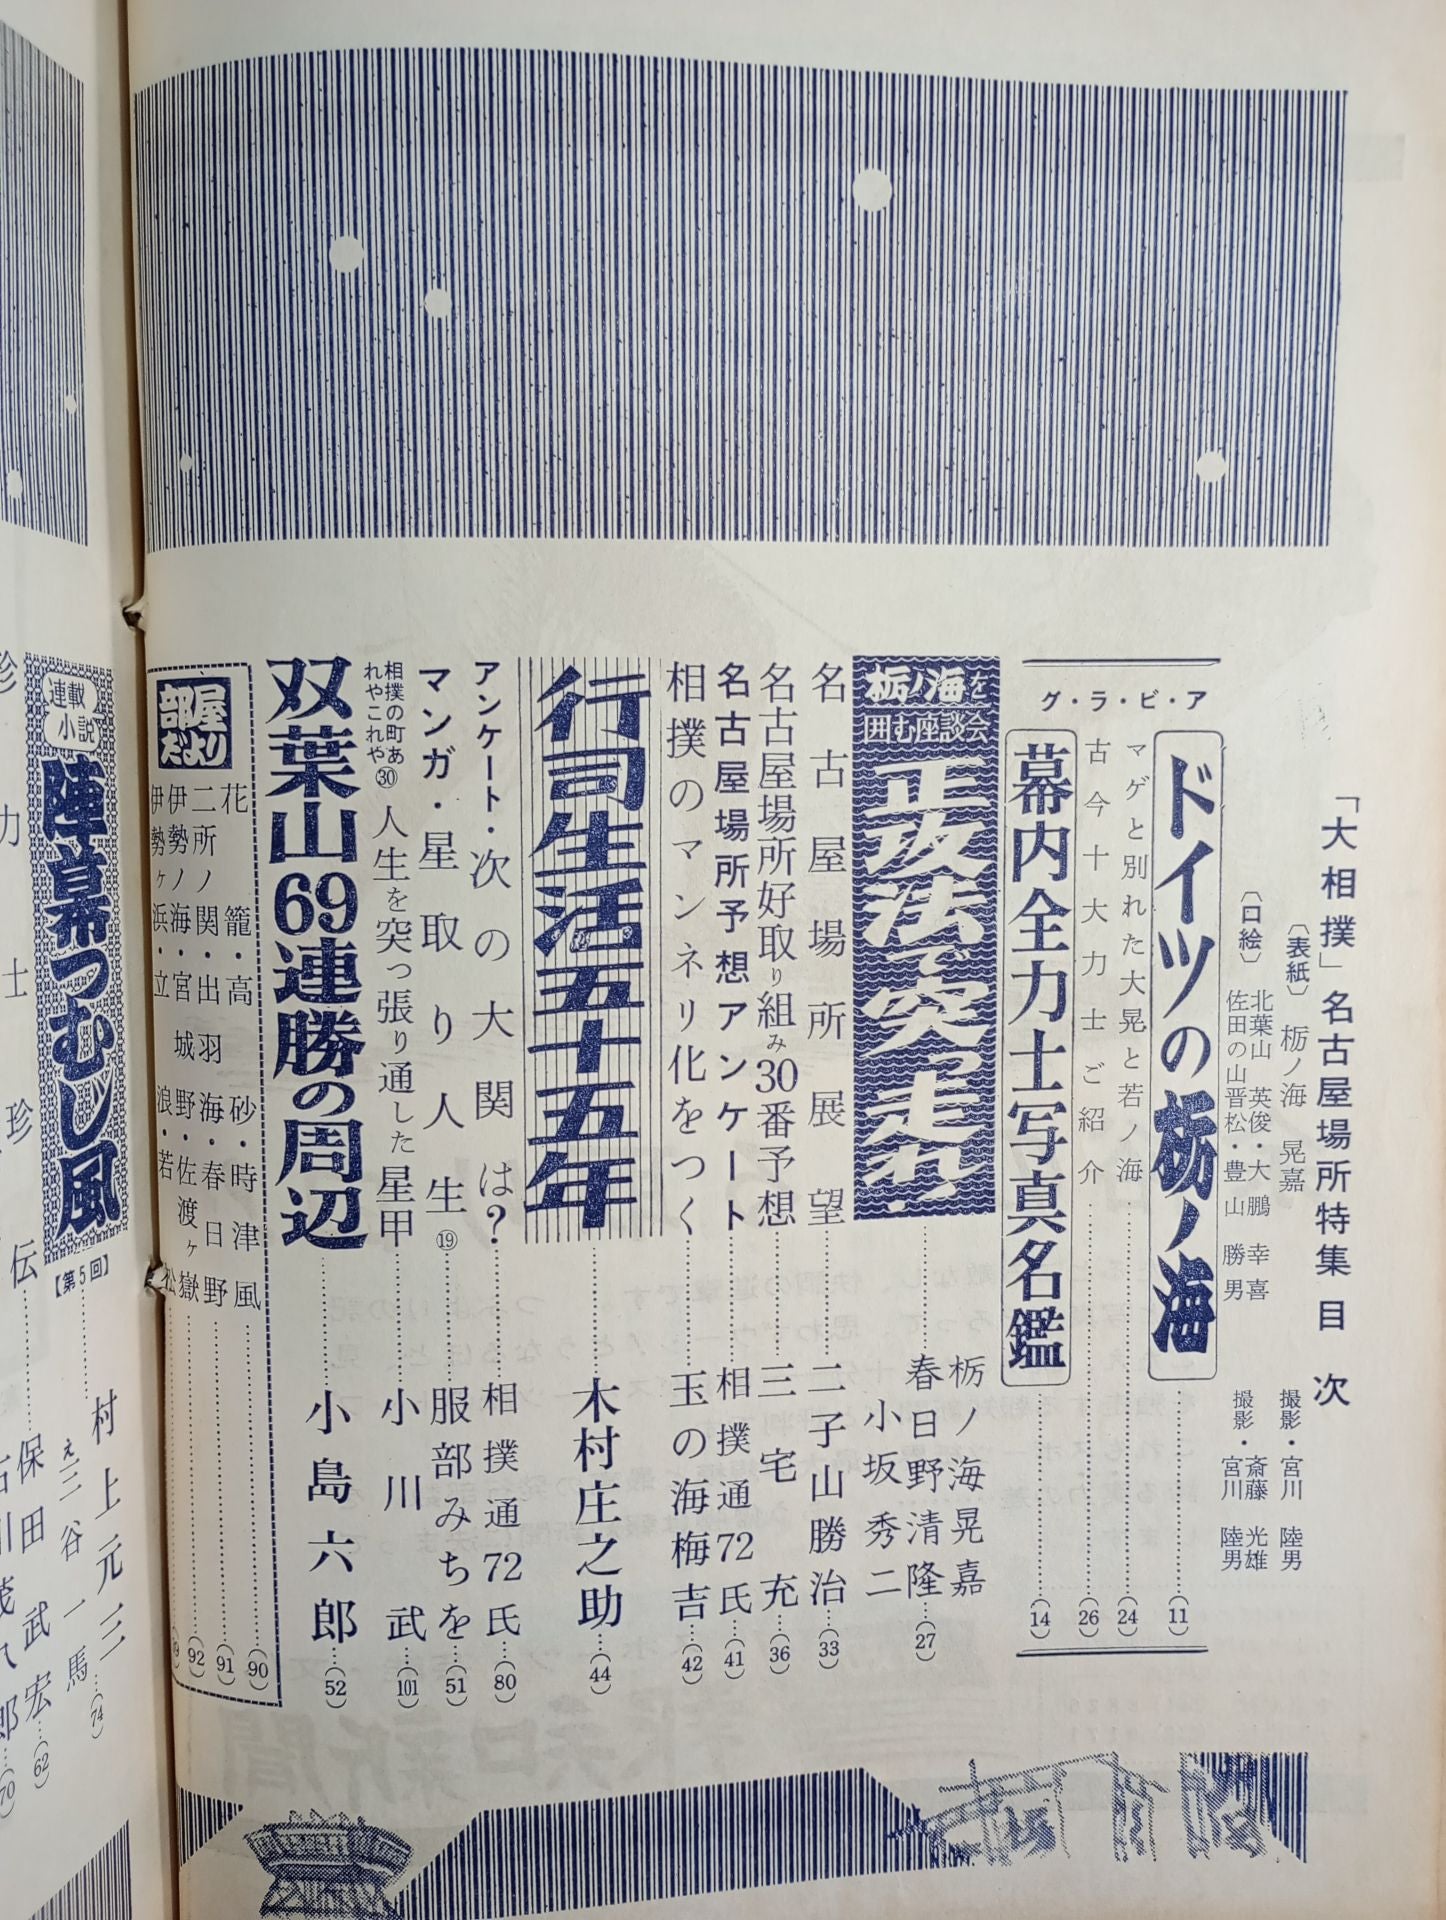 「大相撲」名古屋場所特集 目次
〔表紙〕 栃ノ海 晃嘉 撮影・宮川 陸男
〔口絵〕
北葉山 英俊・大鵬 幸喜 斎藤 光雄
佐田の山晋松・豊山 勝男 撮影・宮川 陸男
グ・ラ・ビ・ア
ドイツの栃ノ海 (11)
マゲと別れた大晃と若ノ海 (24)
古今十大力士ご紹介 (26)
幕内全力士写真名鑑 (14)
栃ノ海を
囲む座談会
正攻法で突っ走れ!
栃ノ海晃嘉
春日野清隆 (27)
小坂秀二
名古屋場所展望 二子山勝治 (33)
名古屋場所好取り組み30番予想 三宅充 (36)
名古屋場所予想アンケート 相撲通72氏 (41)
相撲のマンネリ化をつく 玉の海梅吉 (42)
行司生活五十五年 木村庄之助 (44)
アンケート・次の大関は? 相撲通72氏 (80)
マンガ・星取り人生⑲ 服部みちを (51)
相撲の町あ
れやこれや㉚ 人生を突っ張り通した星甲 小川武 (101)
双葉山69連勝の周辺 小島六郎 (52)
部屋
だより
花籠・高砂・時津風 (90)
二所ノ関・出羽海・春日野 (91)
伊勢ノ海・宮城野・佐渡ヶ嶽 (92)
伊勢ヶ浜・立浪・若松
連載
小説
陣幕つむじ風
【第5回】
村上元三 (74)
え 三谷一馬
伝 保田武宏 (62)
珍力士珍
郎 (70)